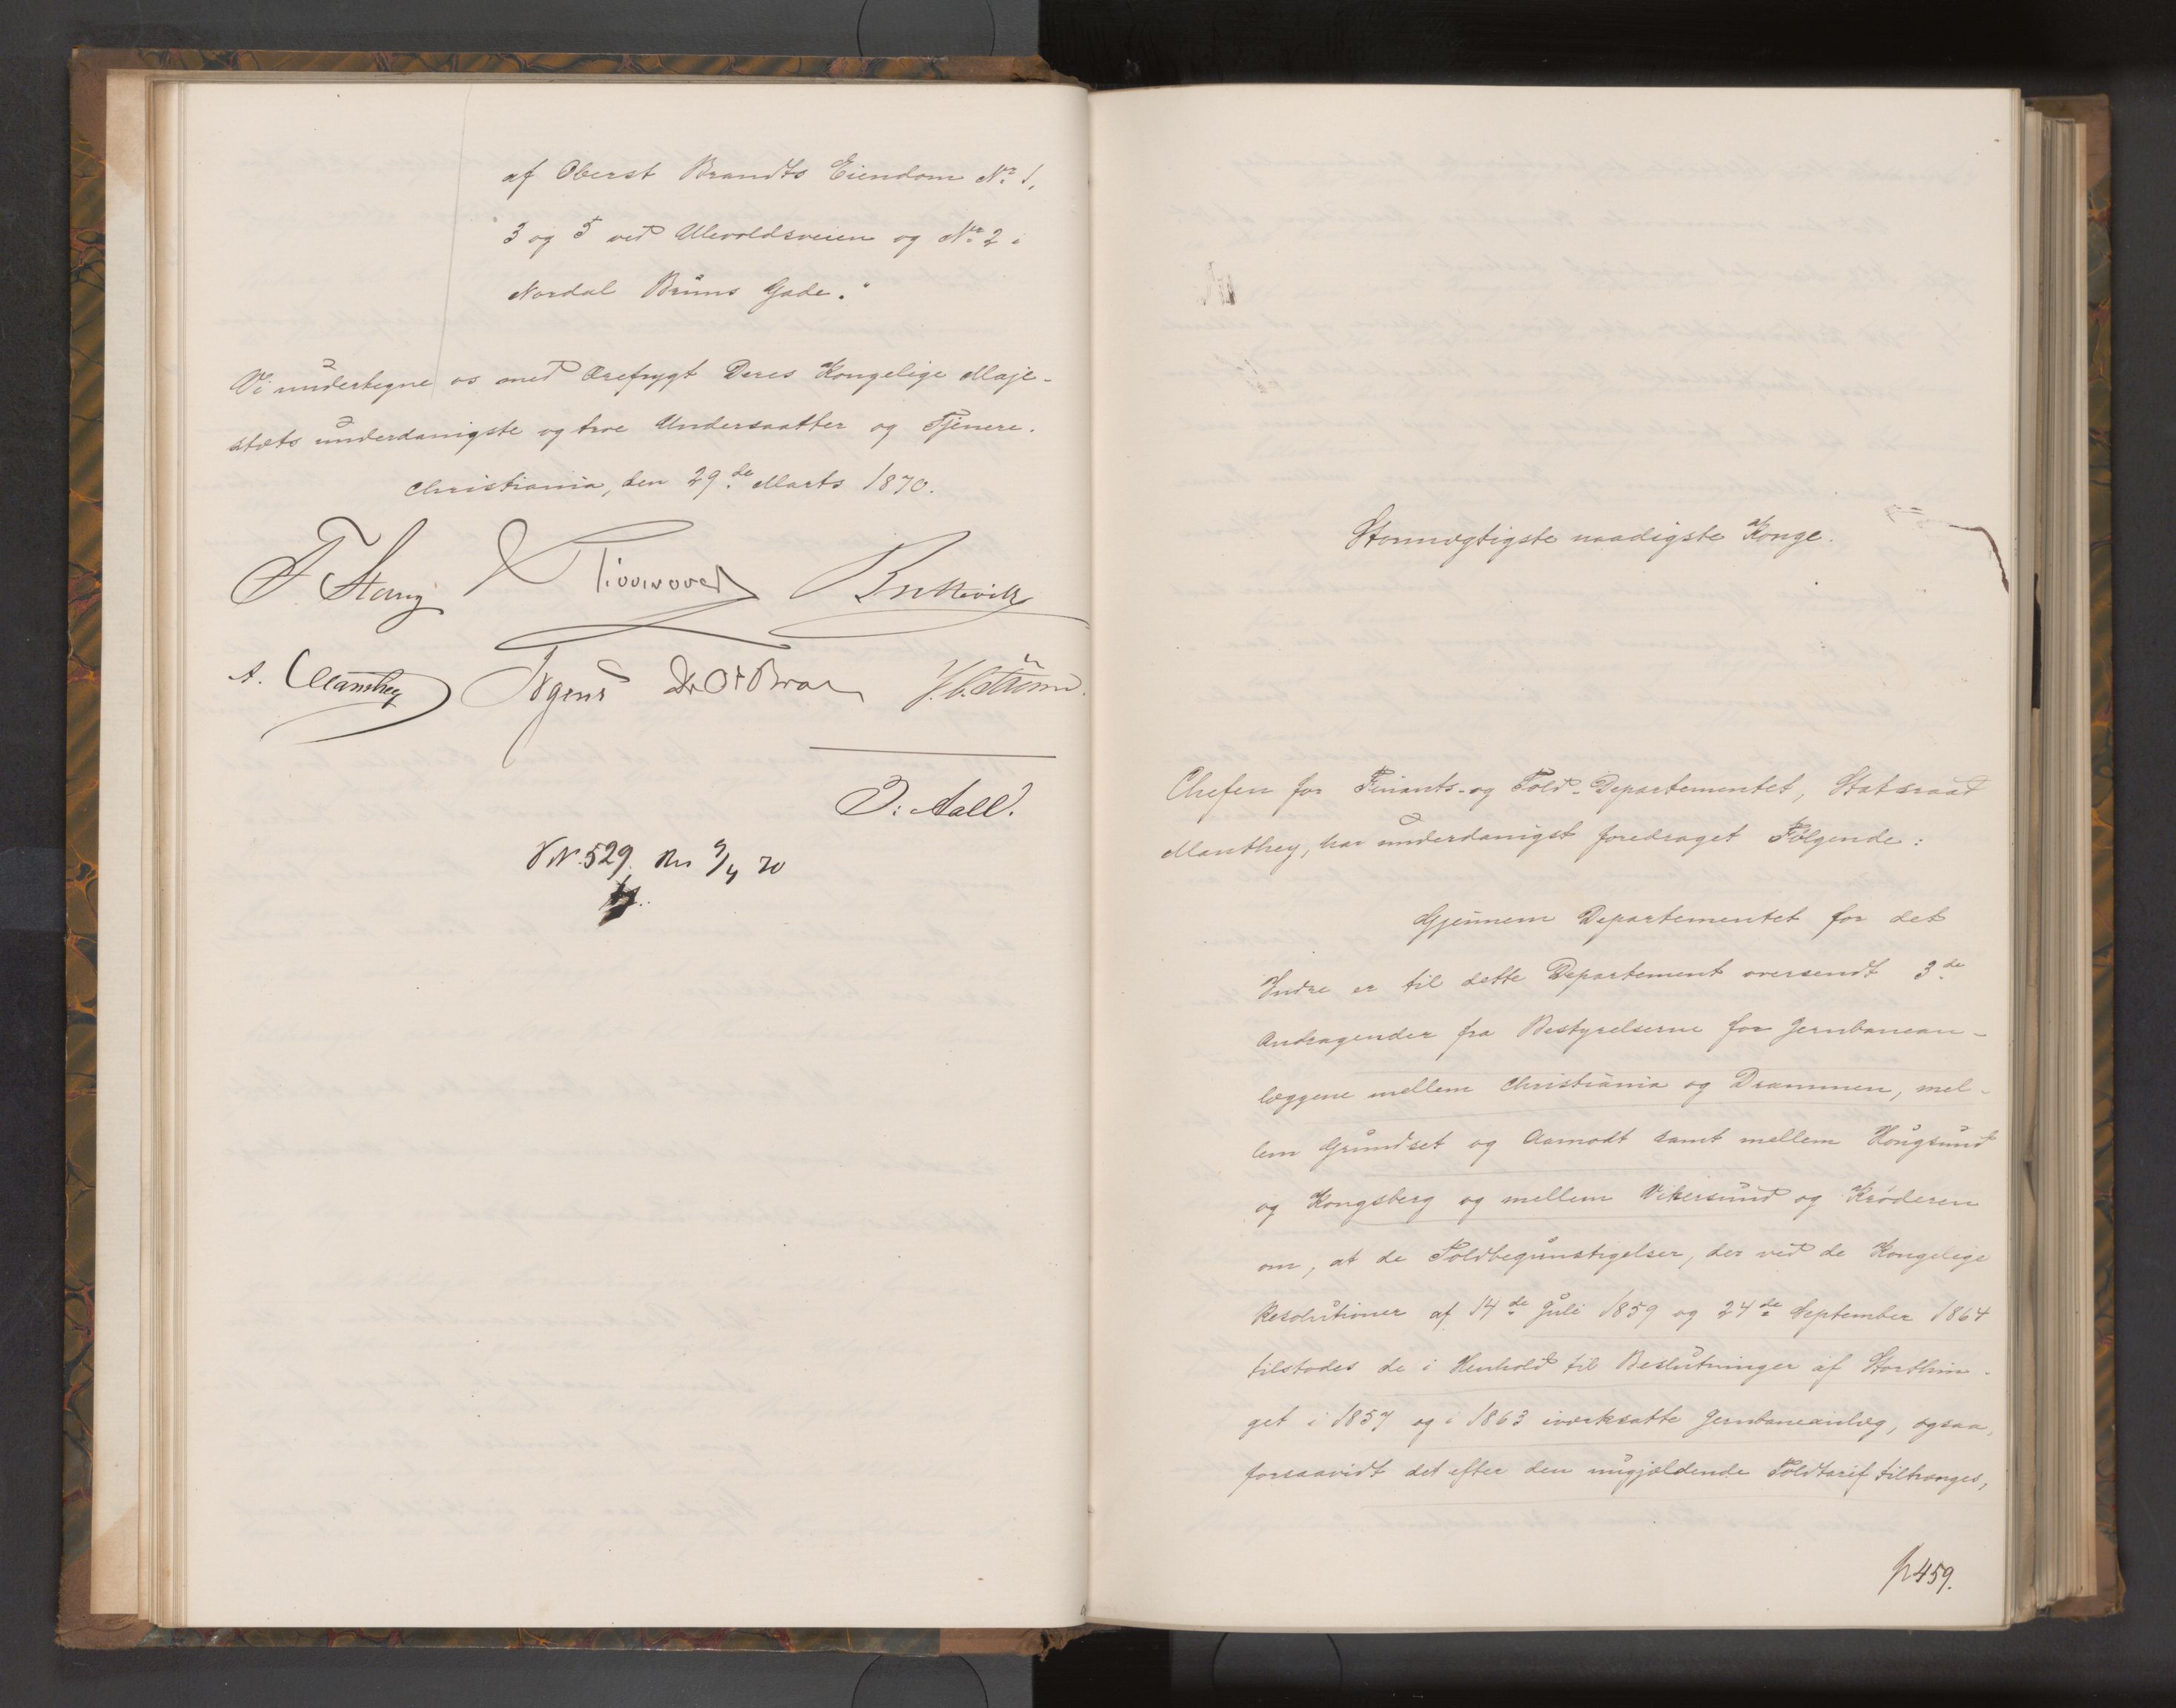 af Oberst Brandts Eiendom No 1,
3 og 5 ved Ullevoldsveien og No 2 i
Nordal Bruns Gade."
Vi undertegne os med Ærefrygt Deres Kongelige Maje-
stæts underdanigste og troe Undersaatter og Tjenere.
Christiania, den 29de Marts 1870.
F. Stang Bretteville
A. Manthey Irgens
D. Aall.
No. 529. 9/4 70
Stormægtigste naadigste Konge.
Chefen for Finants- og Told-Departementet, Statsraad
Manthey, har underdanigst foredraget Følgende:
Gjennem Departementet for det
Indre er til dette Departement oversendt 3de
Andragender fra Bestyrelserne for Jernbanean-
læggene mellem Christiania og Drammen, mel-
lem Grundset og Aamodt samt mellem Hougsund
og Kongsberg og mellem Vikersund og Krøderen
om, at de Toldbegunstigelser, der ved de Kongelige
Resolutioner af 14de Juli 1859 og 24de September 1864
tilstodes de i Henhold til Beslutninger af Storthin-
get i 1857 og i 1863 iværksatte Jernbaneanlæg, ogsaa,
forsaavidt det efter den nugjældende Toldtarif tiltrænges,
459.